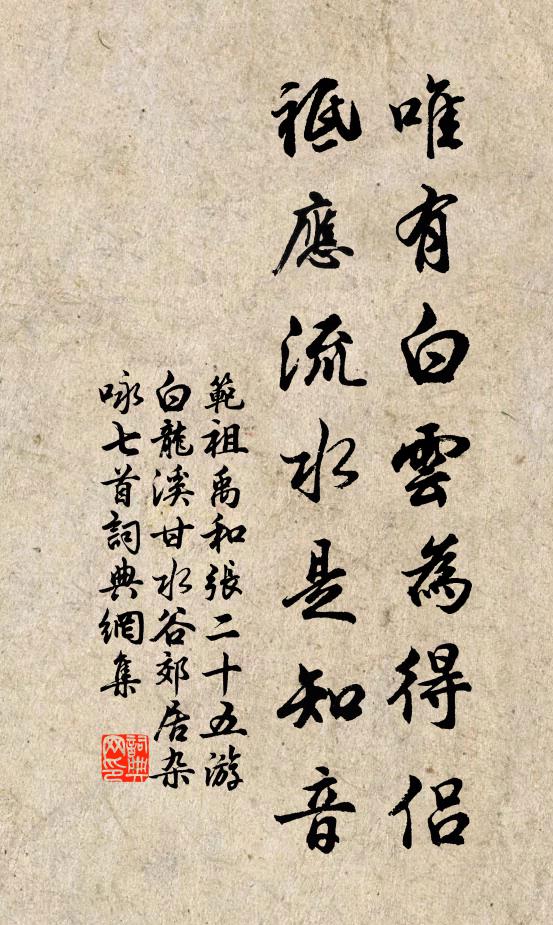 唯有白雲為得侶
祇應流水是知音
範祖禹和張二十五游
白龍溪甘水谷郊居杂
咏七首詞典網集
詞典
网印